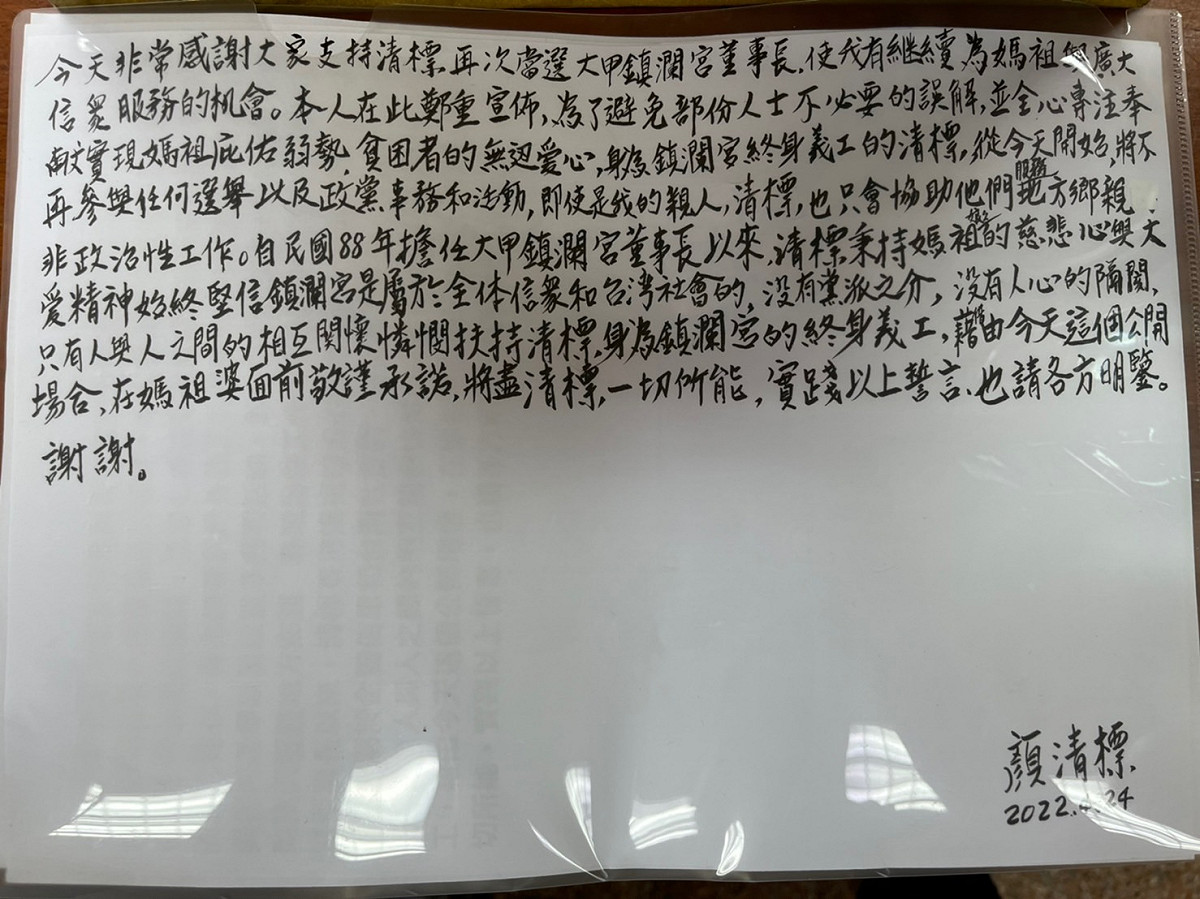 今天非常感謝大家支持清標,再次當選大甲鎮瀾宮董事長,使我有繼續為媽祖與廣大
信眾服務的机會。本人在此鄭重宣佈,為了避免部份人士不必要的誤解,並全心專注奉
獻實現媽祖庇佑弱勢,貧困者的無边爱心,身為鎮瀾宮終身義工的清標,從今天開始,將不
再參與任何選舉以及政黨事務和活動,即使是我的親人,清標,也只會協助他們服務地方鄉親,
非政治性工作。自民國88年擔任大甲鎮瀾宮董事長以來,清標秉持媽祖婆的慈悲心與大
愛精神始終堅信鎮瀾宮是屬於全体信眾和台灣社會的,没有黨派之介,没有人心的隔閡,
只有人與人之間的相互関懷憐憫扶持清標,身為鎮瀾宮的終身義工,藉由今天這個公開
場合,在媽祖婆面前敬謹承諾,將盡清標,一切所能,實踐以上誓言,也請各方明鑒。
謝謝。
顏清標
2022.4.24